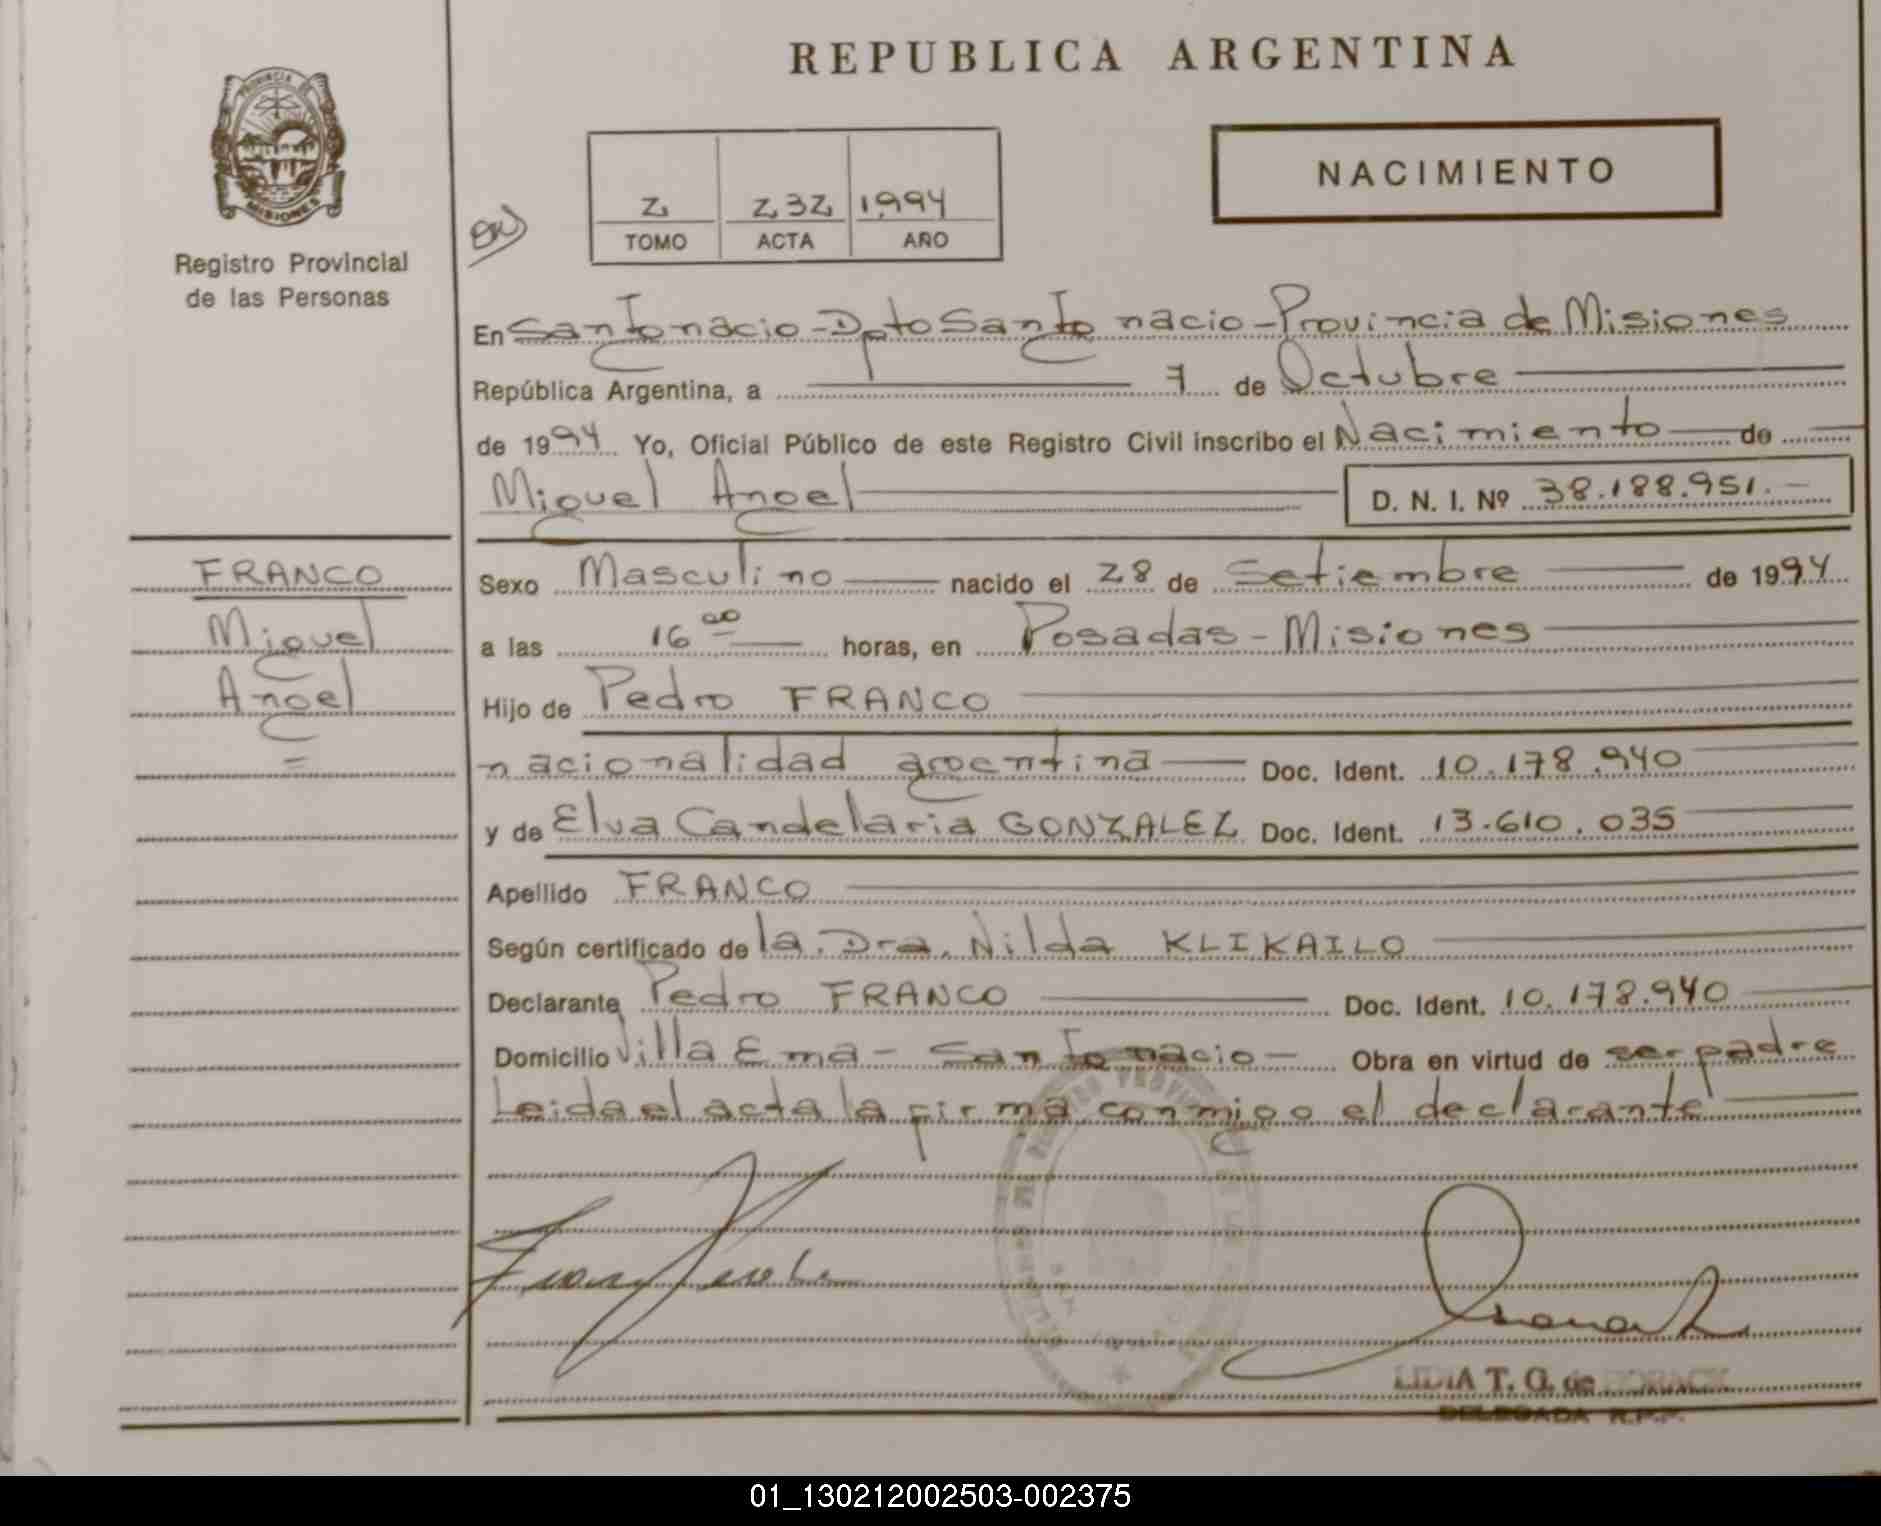 REPUBLICA ARGENTINA
PROVINCIA DE
MISIONES
Registro Provincial
de las Personas
NACIMIENTO
2 232 1994
TOMO ACTA AÑO
En San Ignacio - Dpto San Ignacio - Provincia de Misiones
República Argentina, a 7 de Octubre
de 1994 Yo, Oficial Público de este Registro Civil inscribo el Nacimiento de
Miguel Angel D. N. I. Nº 38.188.951.-
FRANCO
Miguel
Angel
=
Sexo Masculino nacido el 28 de Setiembre de 1994
a las 16 00 horas, en Posadas - Misiones
Hijo de Pedro FRANCO
nacionalidad argentina Doc. Ident. 10.178.940
y de Elva Candelaria GONZALEZ Doc. Ident. 13.610.035
Apellido FRANCO
Según certificado de la Dra. Nilda KLIKAILO
Declarante Pedro FRANCO Doc. Ident. 10.178.940
Domicilio Villa Ema - San Ignacio - Obra en virtud de ser padre
Leida el acta la firma conmigo el declarante
LIDIA T. G. de HORACK
DELEGADA R.P.P.
01_130212002503-002375